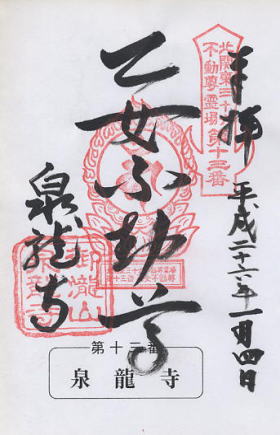 奉拝
平成二十六年一月四日
北関東三十六
不動尊霊場第十三番
乙女不動尊
泉龍寺
第十三番
泉龍寺